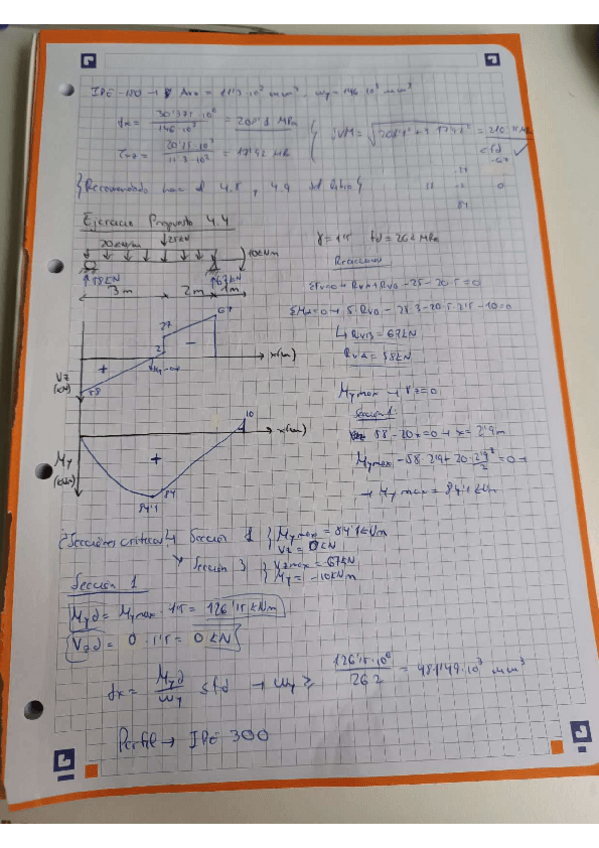 IPE-180 → Aw = 11'3·10² mm², Wy = 146·10³ mm³
σx = 30'375·10⁶ / 146·10³ = 208'1 MPa
τxz = 20'25·10³ / 11'3·10² = 17'92 MPa
σVM = √208'1² + 3·17'92² = 210'
≤ fd ✓
Recomendado hacer el 4.8, 4.9 del libro
Ejercicio Propuesto 4.4
γ = 1'5 fd = 262 MPa
20kN/m ↓25kN 10kNm
Reacciones
↑58kN ↑67kN
3m 2m 1m
ΣFv=0 → RVA+RVB-25-20·5=0
ΣMA=0 → 5·RVB-25·3-20·5·2'5-10=0
↳ RVB=67kN
RVA=58kN
67
27
2
+ −
Mymax
x(m)
Vz (kN)
58
Mymax → Vz=0
Sección 1:
58-20x=0 → x=2'9m
Mymax-58·2'9+20·2'9²/2=0 →
→ Mymax=84'1kNm
10
x(m)
My (kNm)
+
84'1
84
¿Secciones críticas? ↳ Sección 1 { Mymax = 84'1kNm
Vz = 0kN
↘ Sección 3 { Vzmax = -67kN
My = -10kNm
Sección 1
Myd = Mymax·1'5 = 126'15kNm
Vzd = 0·1'5 = 0kN
σx = Myd / Wy ≤ fd → Wy ≥ 126'15·10⁶ / 262 = 481'49·10³ mm³
Perfil → IPE 300